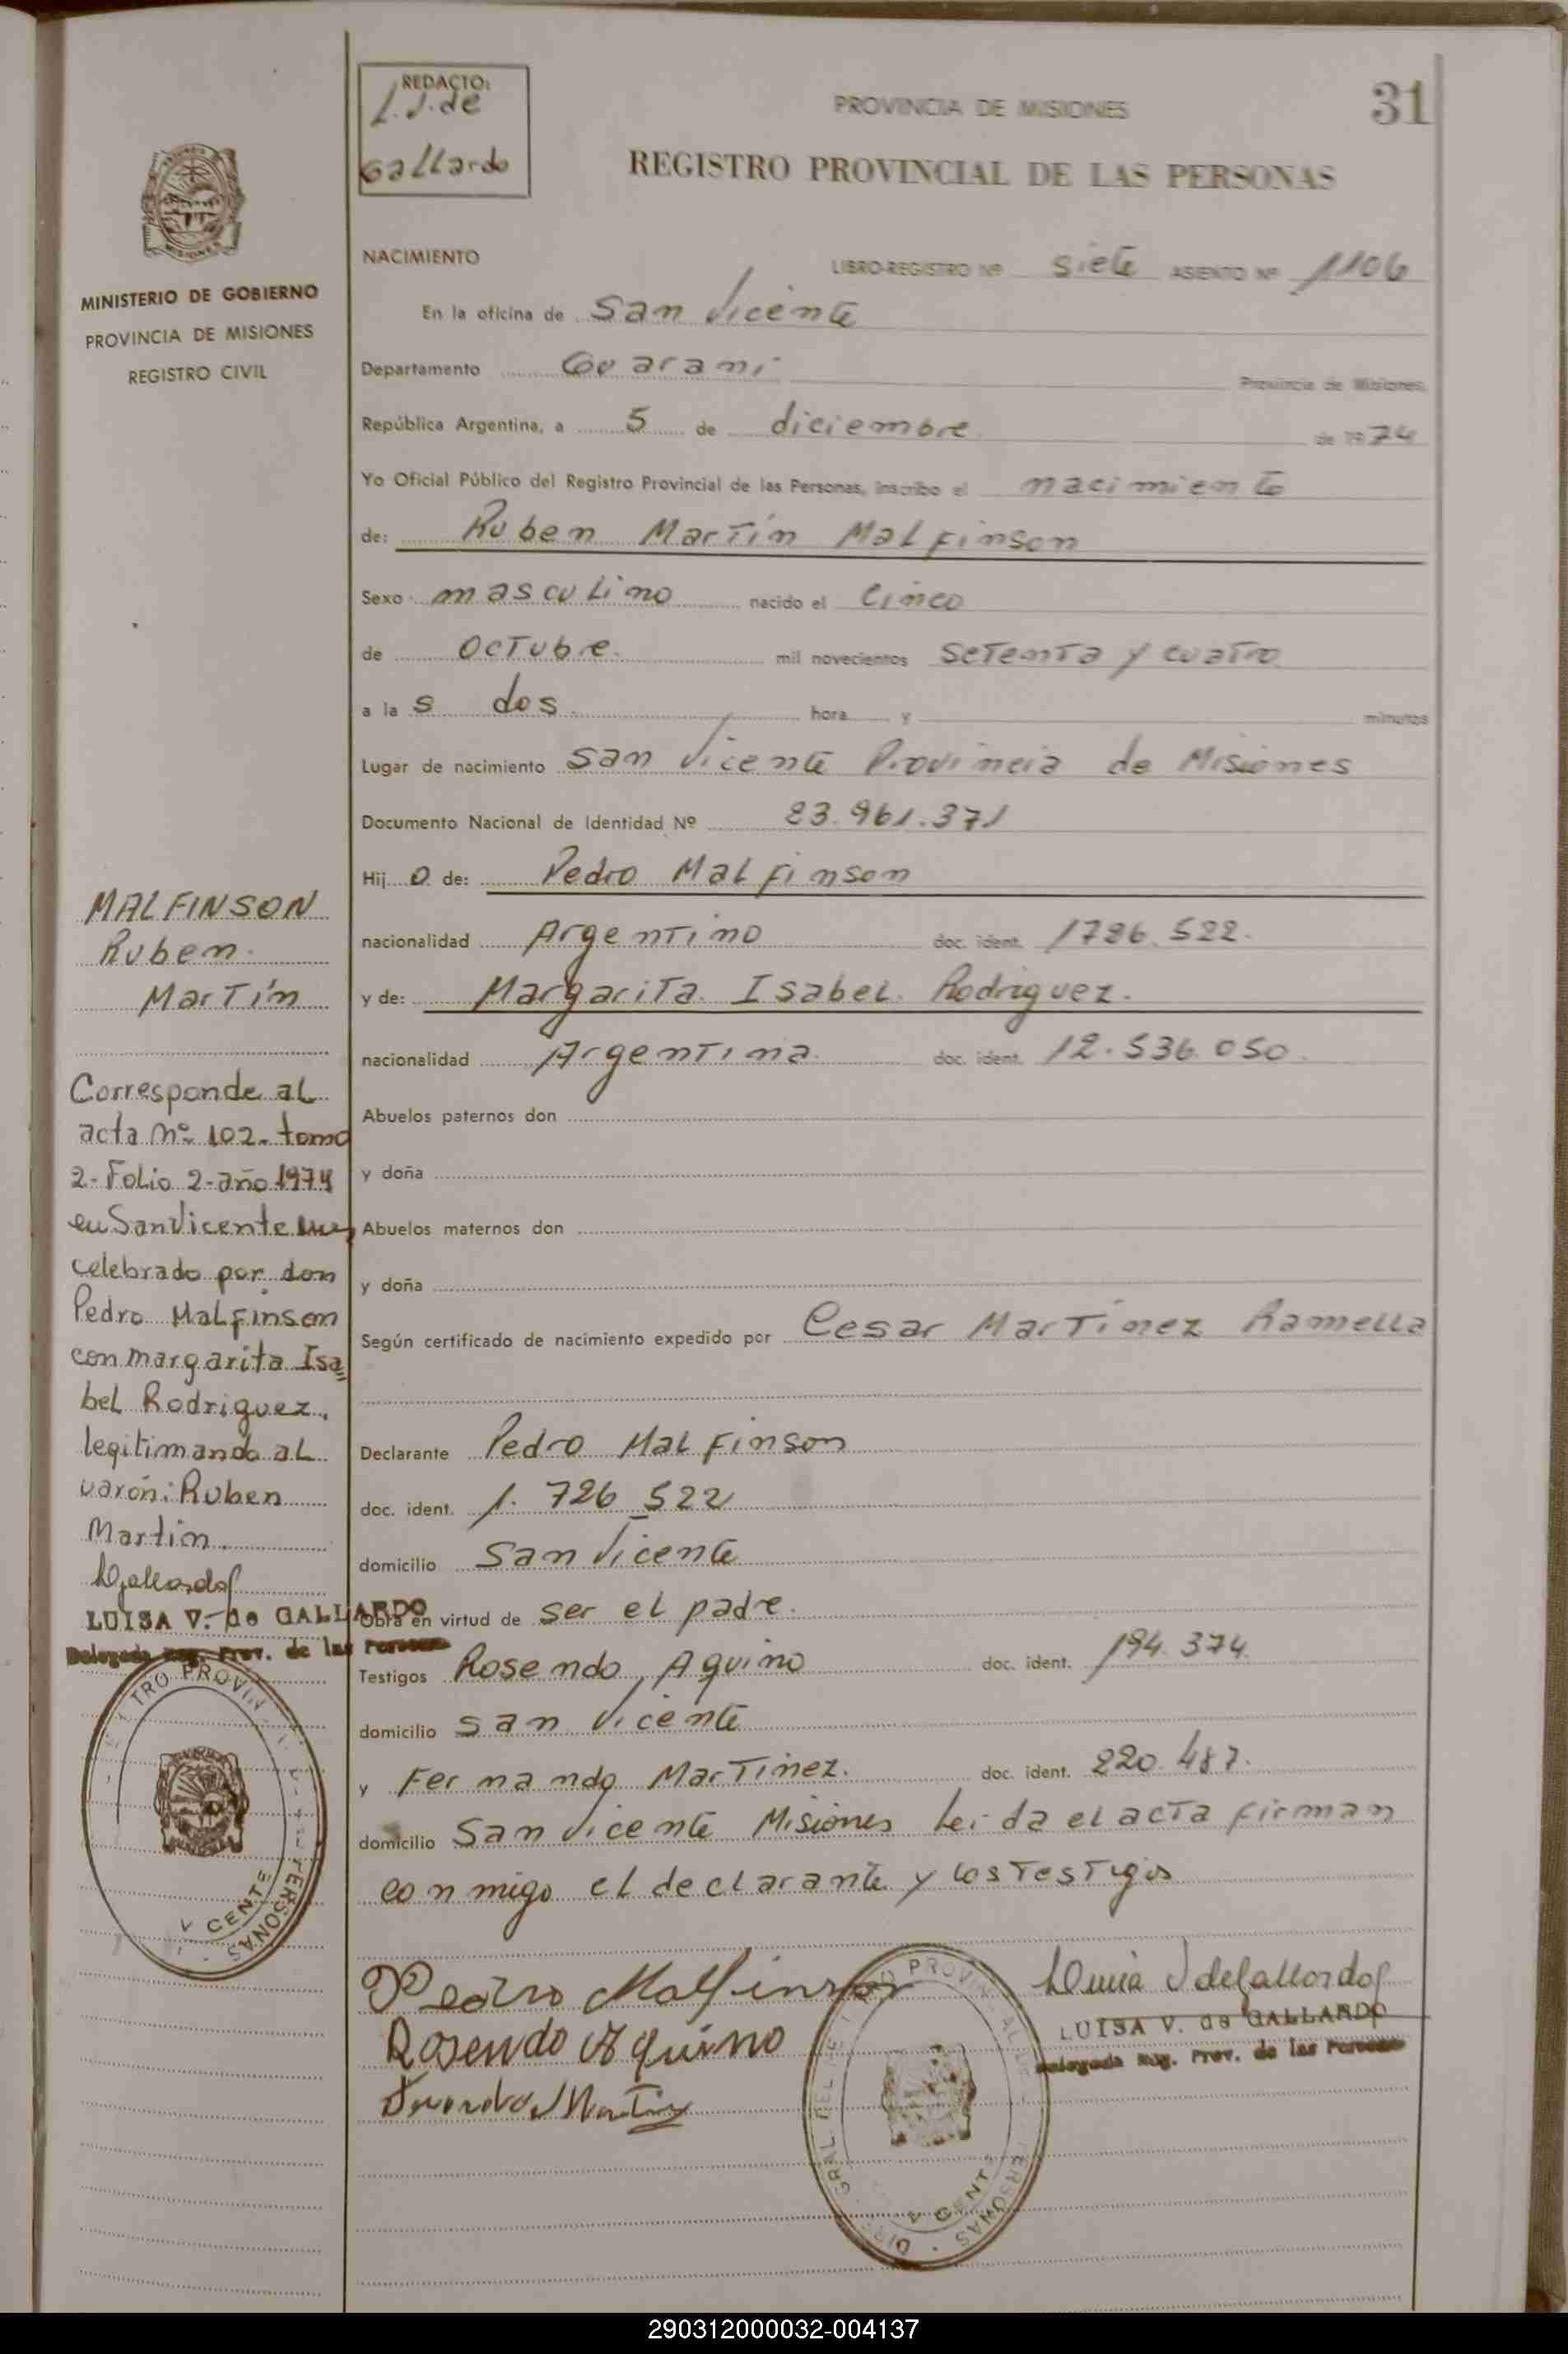 REDACTO:
L. V. de
Gallardo
PROVINCIA DE MISIONES
31
REGISTRO PROVINCIAL DE LAS PERSONAS
MINISTERIO DE GOBIERNO
PROVINCIA DE MISIONES
REGISTRO CIVIL
NACIMIENTO
LIBRO-REGISTRO Nº siete ASIENTO Nº 1106
En la oficina de San Vicente
Departamento Guarani Provincia de Misiones,
República Argentina, a 5 de diciembre de 1974
Yo Oficial Público del Registro Provincial de las Personas, inscribo el nacimiento
de: Ruben Martín Malfinson
Sexo masculino nacido el cinco
de octubre mil novecientos setenta y cuatro
a la s dos hora y minutos
Lugar de nacimiento San Vicente Provincia de Misiones
Documento Nacional de Identidad Nº 23.961.371
Hij o de: Pedro Malfinson
nacionalidad Argentino doc. ident. 1726.522.
y de: Margarita Isabel Rodriguez.
nacionalidad Argentina doc. ident. 12.536.050.
Abuelos paternos don
y doña
Abuelos maternos don
y doña
Según certificado de nacimiento expedido por Cesar Martínez Ramella
Declarante Pedro Malfinson
doc. ident. 1.726.522
domicilio San Vicente
Obra en virtud de ser el padre.
Testigos Rosendo Aquino doc. ident. 194.374.
domicilio San Vicente
y Fernando Martinez. doc. ident. 220.487.
domicilio San Vicente Misiones Leida el acta firman
conmigo el declarante y los testigos
MALFINSON
Ruben
Martín
Corresponde al
acta nº 102. tomo
2- Folio 2- año 1974
en San Vicente
celebrado por don
Pedro Malfinson
con margarita Isa=
bel Rodriguez,
legitimando al
varón: Ruben
Martin.
LGallardo
LUISA V. de GALLARDO
Delegada Reg. Prov. de las Personas
Pedro Malfinson
Rosendo Aquino
Fernando Martinez
Luisa V de Gallardo
LUISA V. de GALLARDO
Delegada Reg. Prov. de las Personas
290312000032-004137